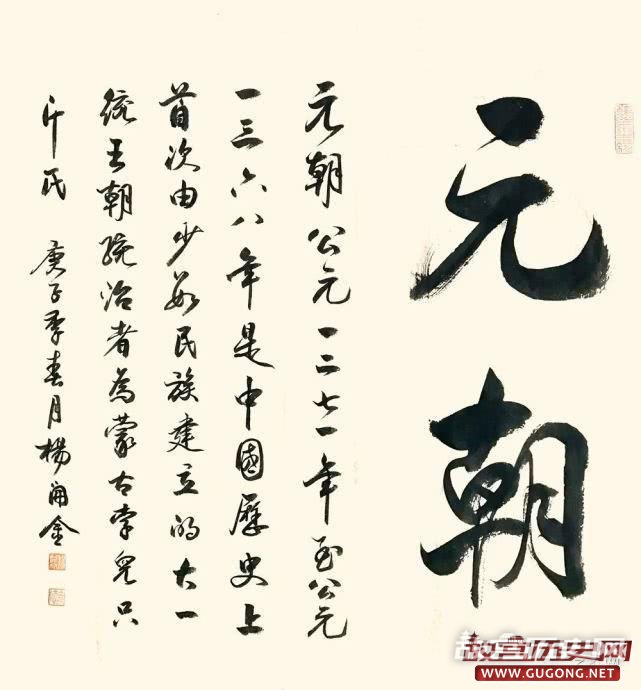 元朝
元朝公元一二七一年至公元
一三六八年是中國歷史上
首次由少数民族建立的大一
统王朝统治者為蒙古孛兒只
斤氏 庚子季春月楊開金
故宫历史网
WWW.GUGONG.NET